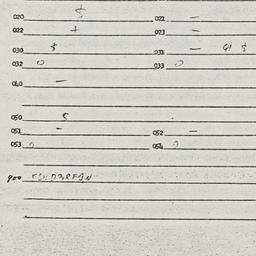 020 $ 021 —
022 + 023 —
030 $ 031 — $
032 0 033 0
040 —
050 $
051 - 052 —
053 0 054 0
900